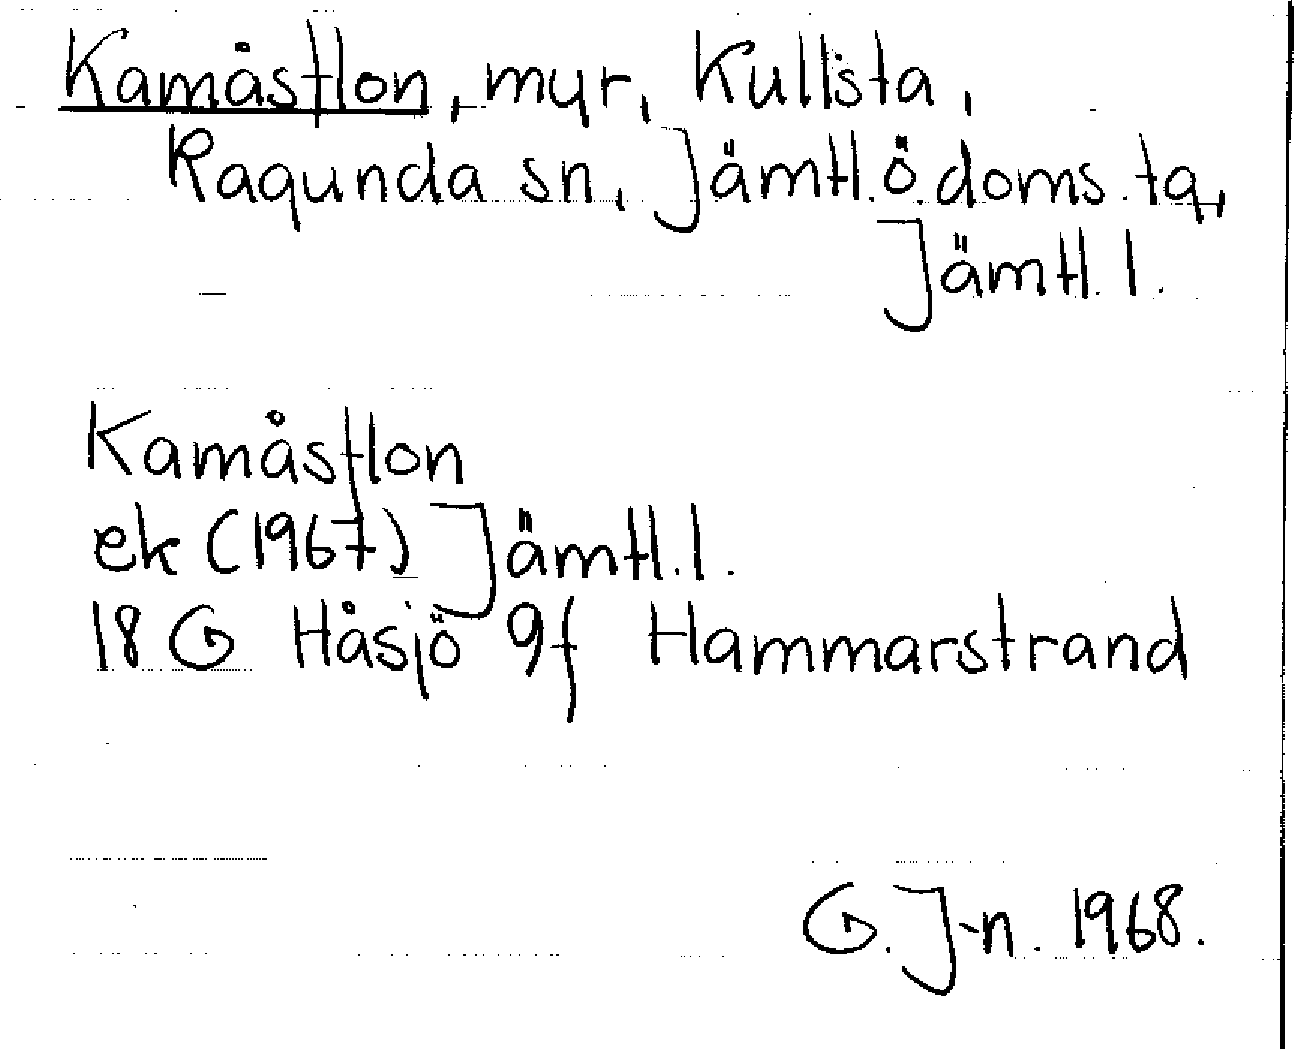 Kamåstlon, myr, Kullsta,
Ragunda sn, Jämtl. ö. doms. tg,
Jämtl. l.
Kamåstlon
ek (1967) Jämtl. l.
18 G Håsjö 9f Hammarstrand
G. J-n. 1968.